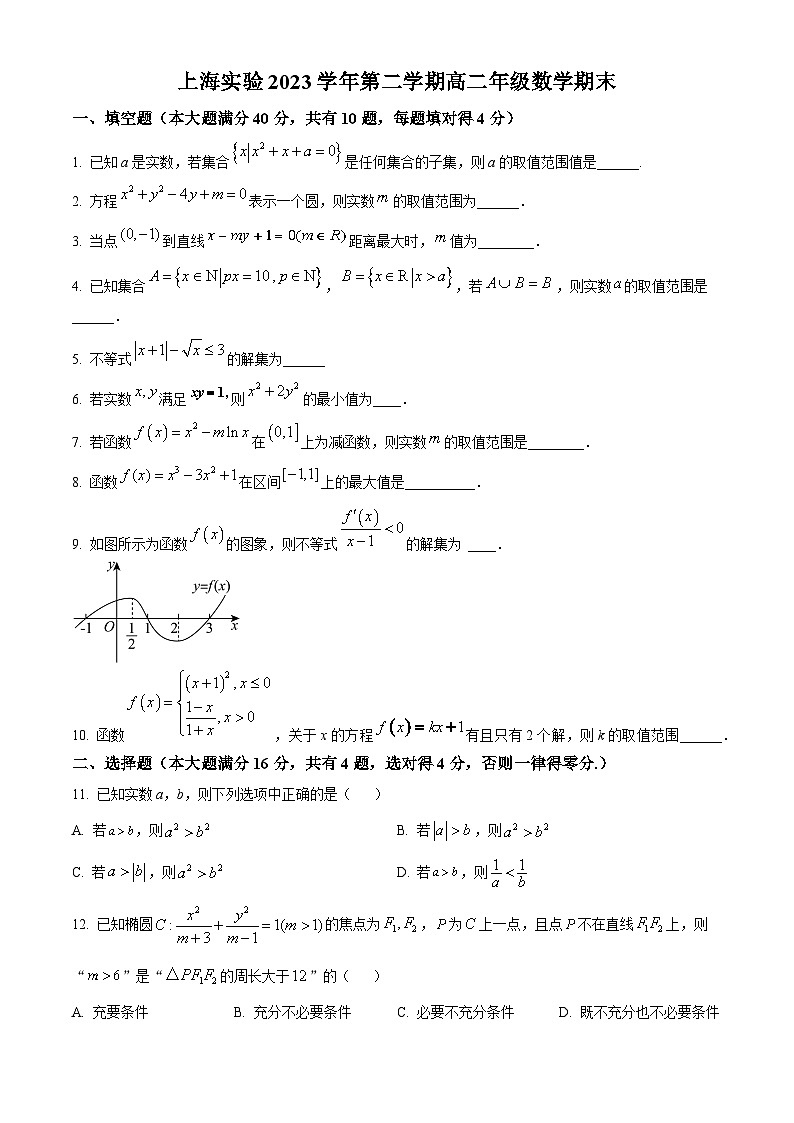 上海实验 2023 学年第二学期高二年级数学期末
一、填空题（本大题满分 40 分，共有 10 题，每题填对得 4 分）
1. 已知 a 是实数，若集合 {x|x²+x+a=0} 是任何集合的子集，则 a 的取值范围值是______.
2. 方程 x²+y²−4y+m=0 表示一个圆，则实数 m 的取值范围为______．
3. 当点 (0,−1) 到直线 x−my+1=0(m∈R) 距离最大时，m 值为________．
4. 已知集合 A={x∈N|px=10, p∈N}，B={x∈R|x>a}，若 A∪B=B，则实数 a 的取值范围是
______．
5. 不等式 |x+1|−√x≤3 的解集为______
6. 若实数 x, y 满足 xy=1, 则 x²+2y² 的最小值为____．
7. 若函数 f(x)=x²−mln x 在 (0,1] 上为减函数，则实数 m 的取值范围是________．
8. 函数 f(x)=x³−3x²+1 在区间 [−1,1] 上的最大值是__________．
9. 如图所示为函数 f(x) 的图象，则不等式 f′(x)/(x−1)<0 的解集为 ____．
y
y=f(x)
-1 O 1/2 1 2 3 x
10. 函数 f(x)={(x+1)², x≤0; (1−x)/(1+x), x>0，关于 x 的方程 f(x)=kx+1 有且只有 2 个解，则 k 的取值范围______．
二、选择题（本大题满分 16 分，共有 4 题，选对得 4 分，否则一律得零分.）
11. 已知实数 a，b，则下列选项中正确的是（ ）
A. 若 a>b，则 a²>b² B. 若 |a|>b，则 a²>b²
C. 若 a>|b|，则 a²>b² D. 若 a>b，则 1/a<1/b
12. 已知椭圆 C: x²/(m+3)+y²/(m−1)=1(m>1) 的焦点为 F₁,F₂，P 为 C 上一点，且点 P 不在直线 F₁F₂ 上，则
“m>6”是“△PF₁F₂ 的周长大于 12”的（ ）
A. 充要条件 B. 充分不必要条件 C. 必要不充分条件 D. 既不充分也不必要条件